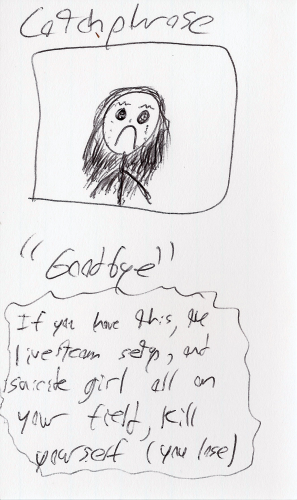 Catchphrase
"Goodbye"
If you have this, the
livestream setup, and
suicide girl all on
your field, kill
yourself (you lose)